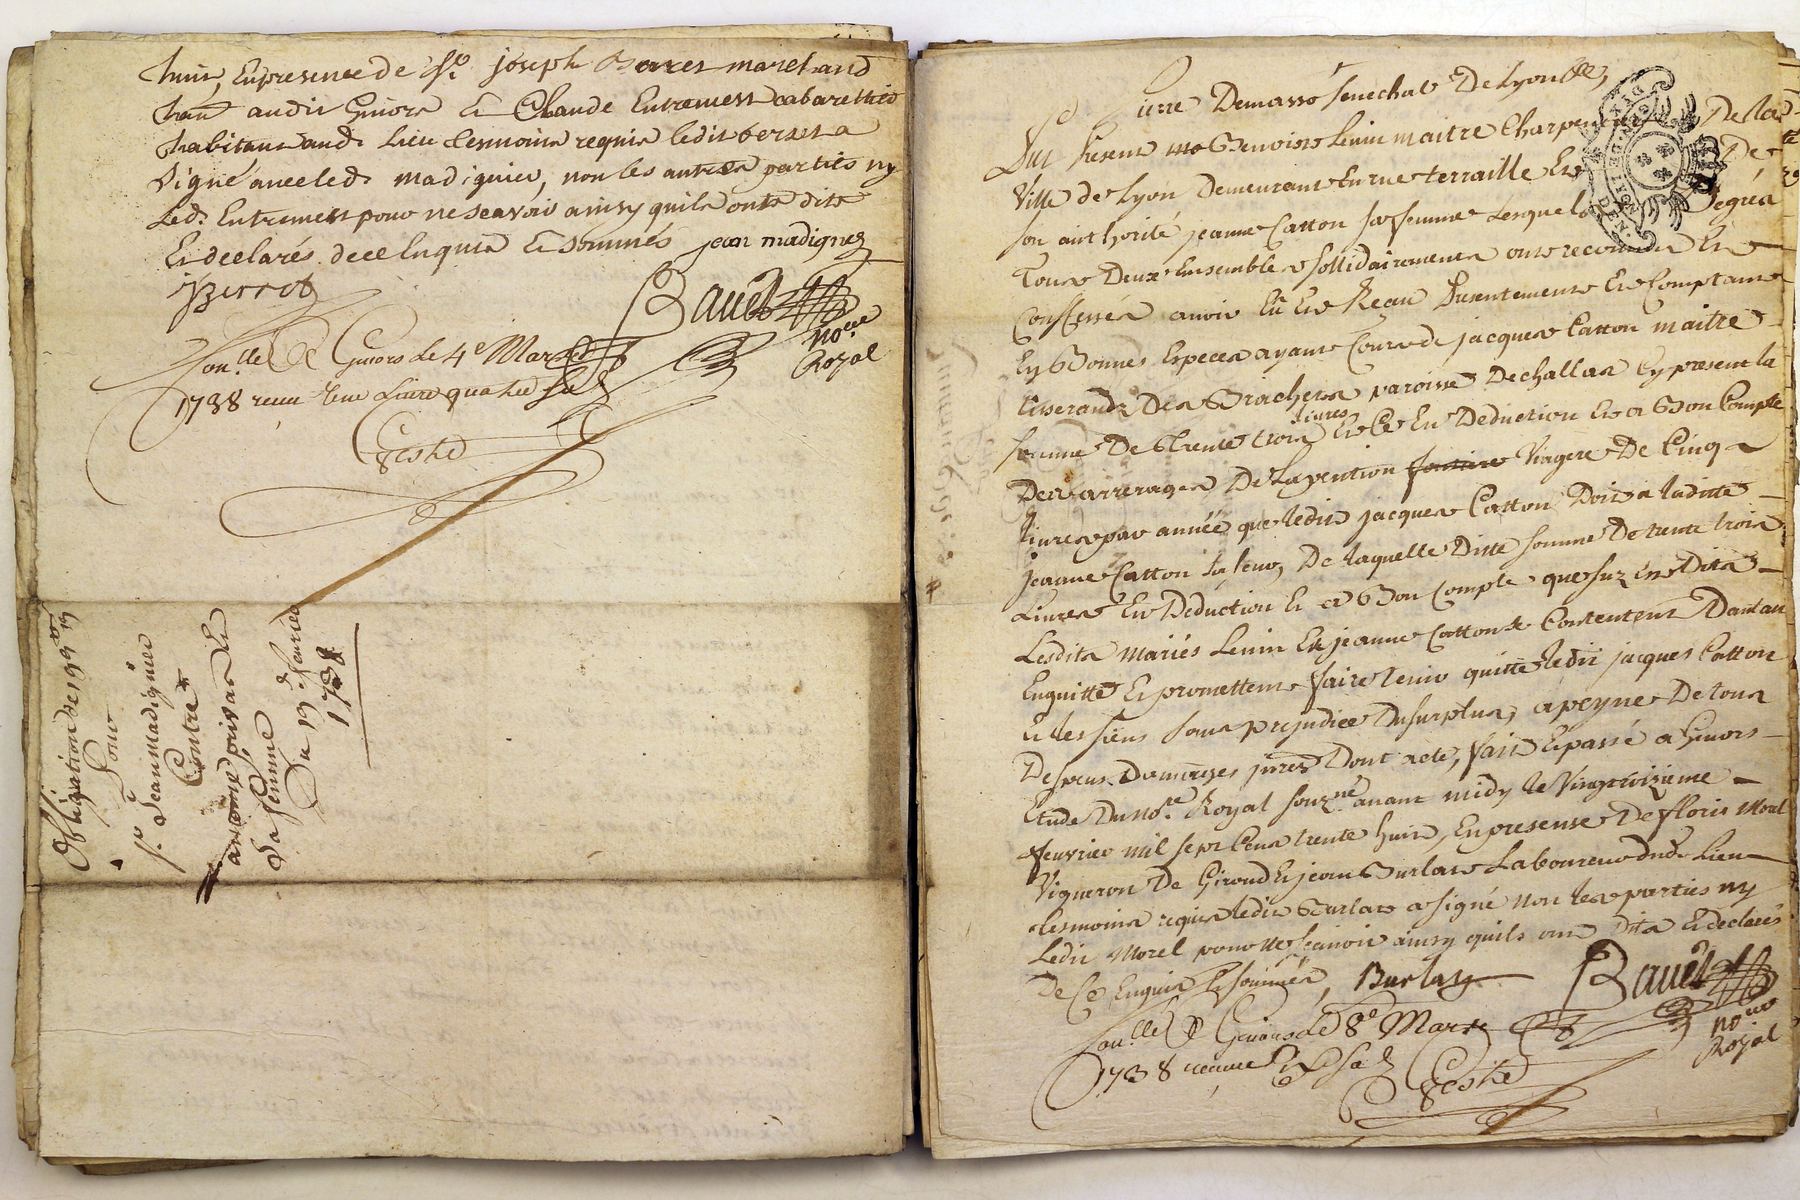 huit, En presence de Sr. joseph marchand
audit Givors Et Claude Entremest cabarettier
habitans aud. Lieu tesmoins requis ledit
Signé avec led. madiguier, non les autres parties ny
Led. Entremest pour ne scavoir ainsy quils ont dits
Et declarés de ce Enquis Et sommés jean madignez
Bauet
no.re
Royal
Con.lle A Givors Le 4e Mars
1738 receu une Livre quatre sols
Geshe
Obligation de 199
Pour
Sr. Jean madiguier
Contre
privas Et
Sa femme
Du 19e. fevrier
1738
Pierre Demasso Senechal De Lyon
Fut Present Benoist Lenin maitre Charpentier De la
Ville de Lyon Demeurant En rue terraille Et De
son authorité jeanne Catton sa femme Lesquels Degrés
Tous Deux Ensemble sollidairement ont reconnu Et
Confessés avoir Eu Et Reçeu Presentement Et Comptant
En Bonnes Especes ayant Cours de jacques Catton maitre
tisserand Des Brachets paroisse De challas Cy present la
somme De trente trois livres Et Ce En Deduction Et a Bon Compte
Des arrerages De la pention Viagere De Cinq
Livres par année que ledit jacques Catton Doit a laditte
jeanne Catton sa seur, De laquelle Ditte somme De trente trois
Livres En Deduction Et a Bon Compte que suz Est Dits
Lesdits mariés Lenin Et jeanne Catton se Contentent D'autant
En quitte Et promettent faire tenir quitte ledit jacques Catton
Et les siens sans prejudice Du surplus, a peyne De tous
Despens Domages jnrets Dont acte, fait Et passé a Givors
Etude Du No.re Royal souz.né avant midy le Vingt
fevrier mil sept Cens trente huit, En presense De floris Morel
Vigneron De Giroud Et jean Burlas Laboureur dud. Lieu
tesmoins requis ledit Burlas a signé non les parties ny
Ledit Morel pour ne scavoir ainsy quils ont Dits Et declarés
De Ce Enquis Et sommés, Burlas
Bauet
no.re
Royal
Con.lle A Givors Le 8e Mars
1738 receu sols
Geshe